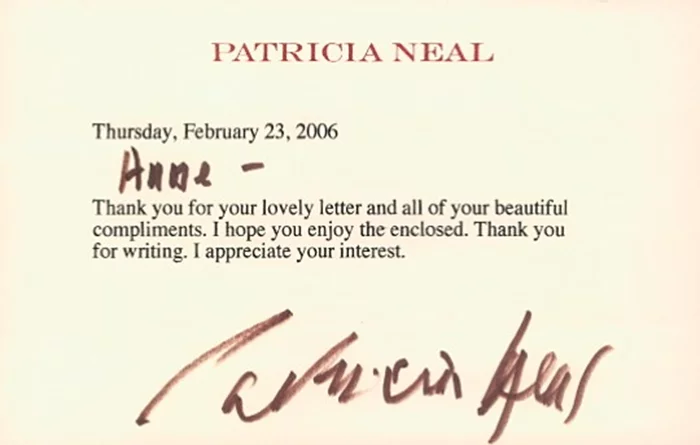 PATRICIA NEAL
Thursday, February 23, 2006
Anne -
Thank you for your lovely letter and all of your beautiful
compliments. I hope you enjoy the enclosed. Thank you
for writing. I appreciate your interest.
Patricia Neal